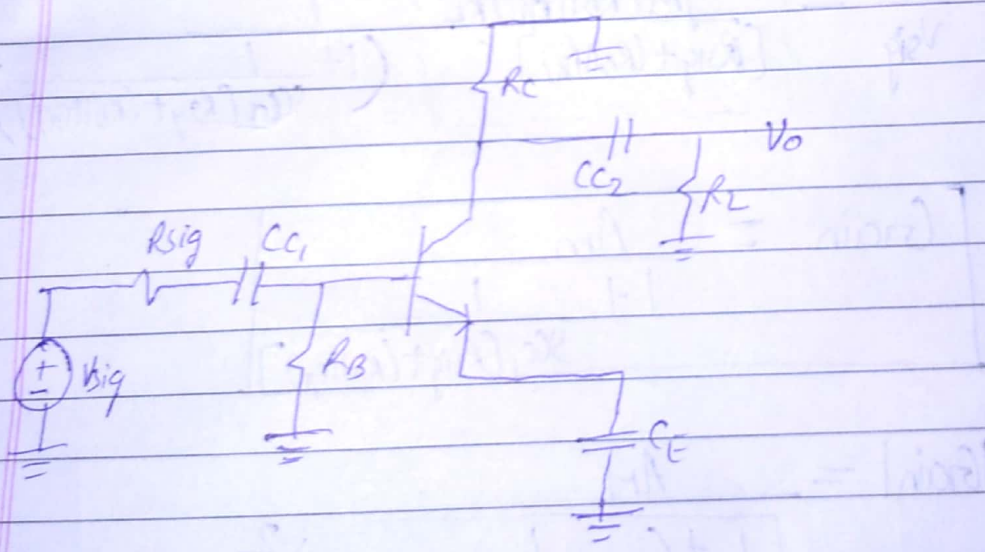 RC
CC2
Vo
RL
Rsig
CC1
RB
+
-
Vsig
CE